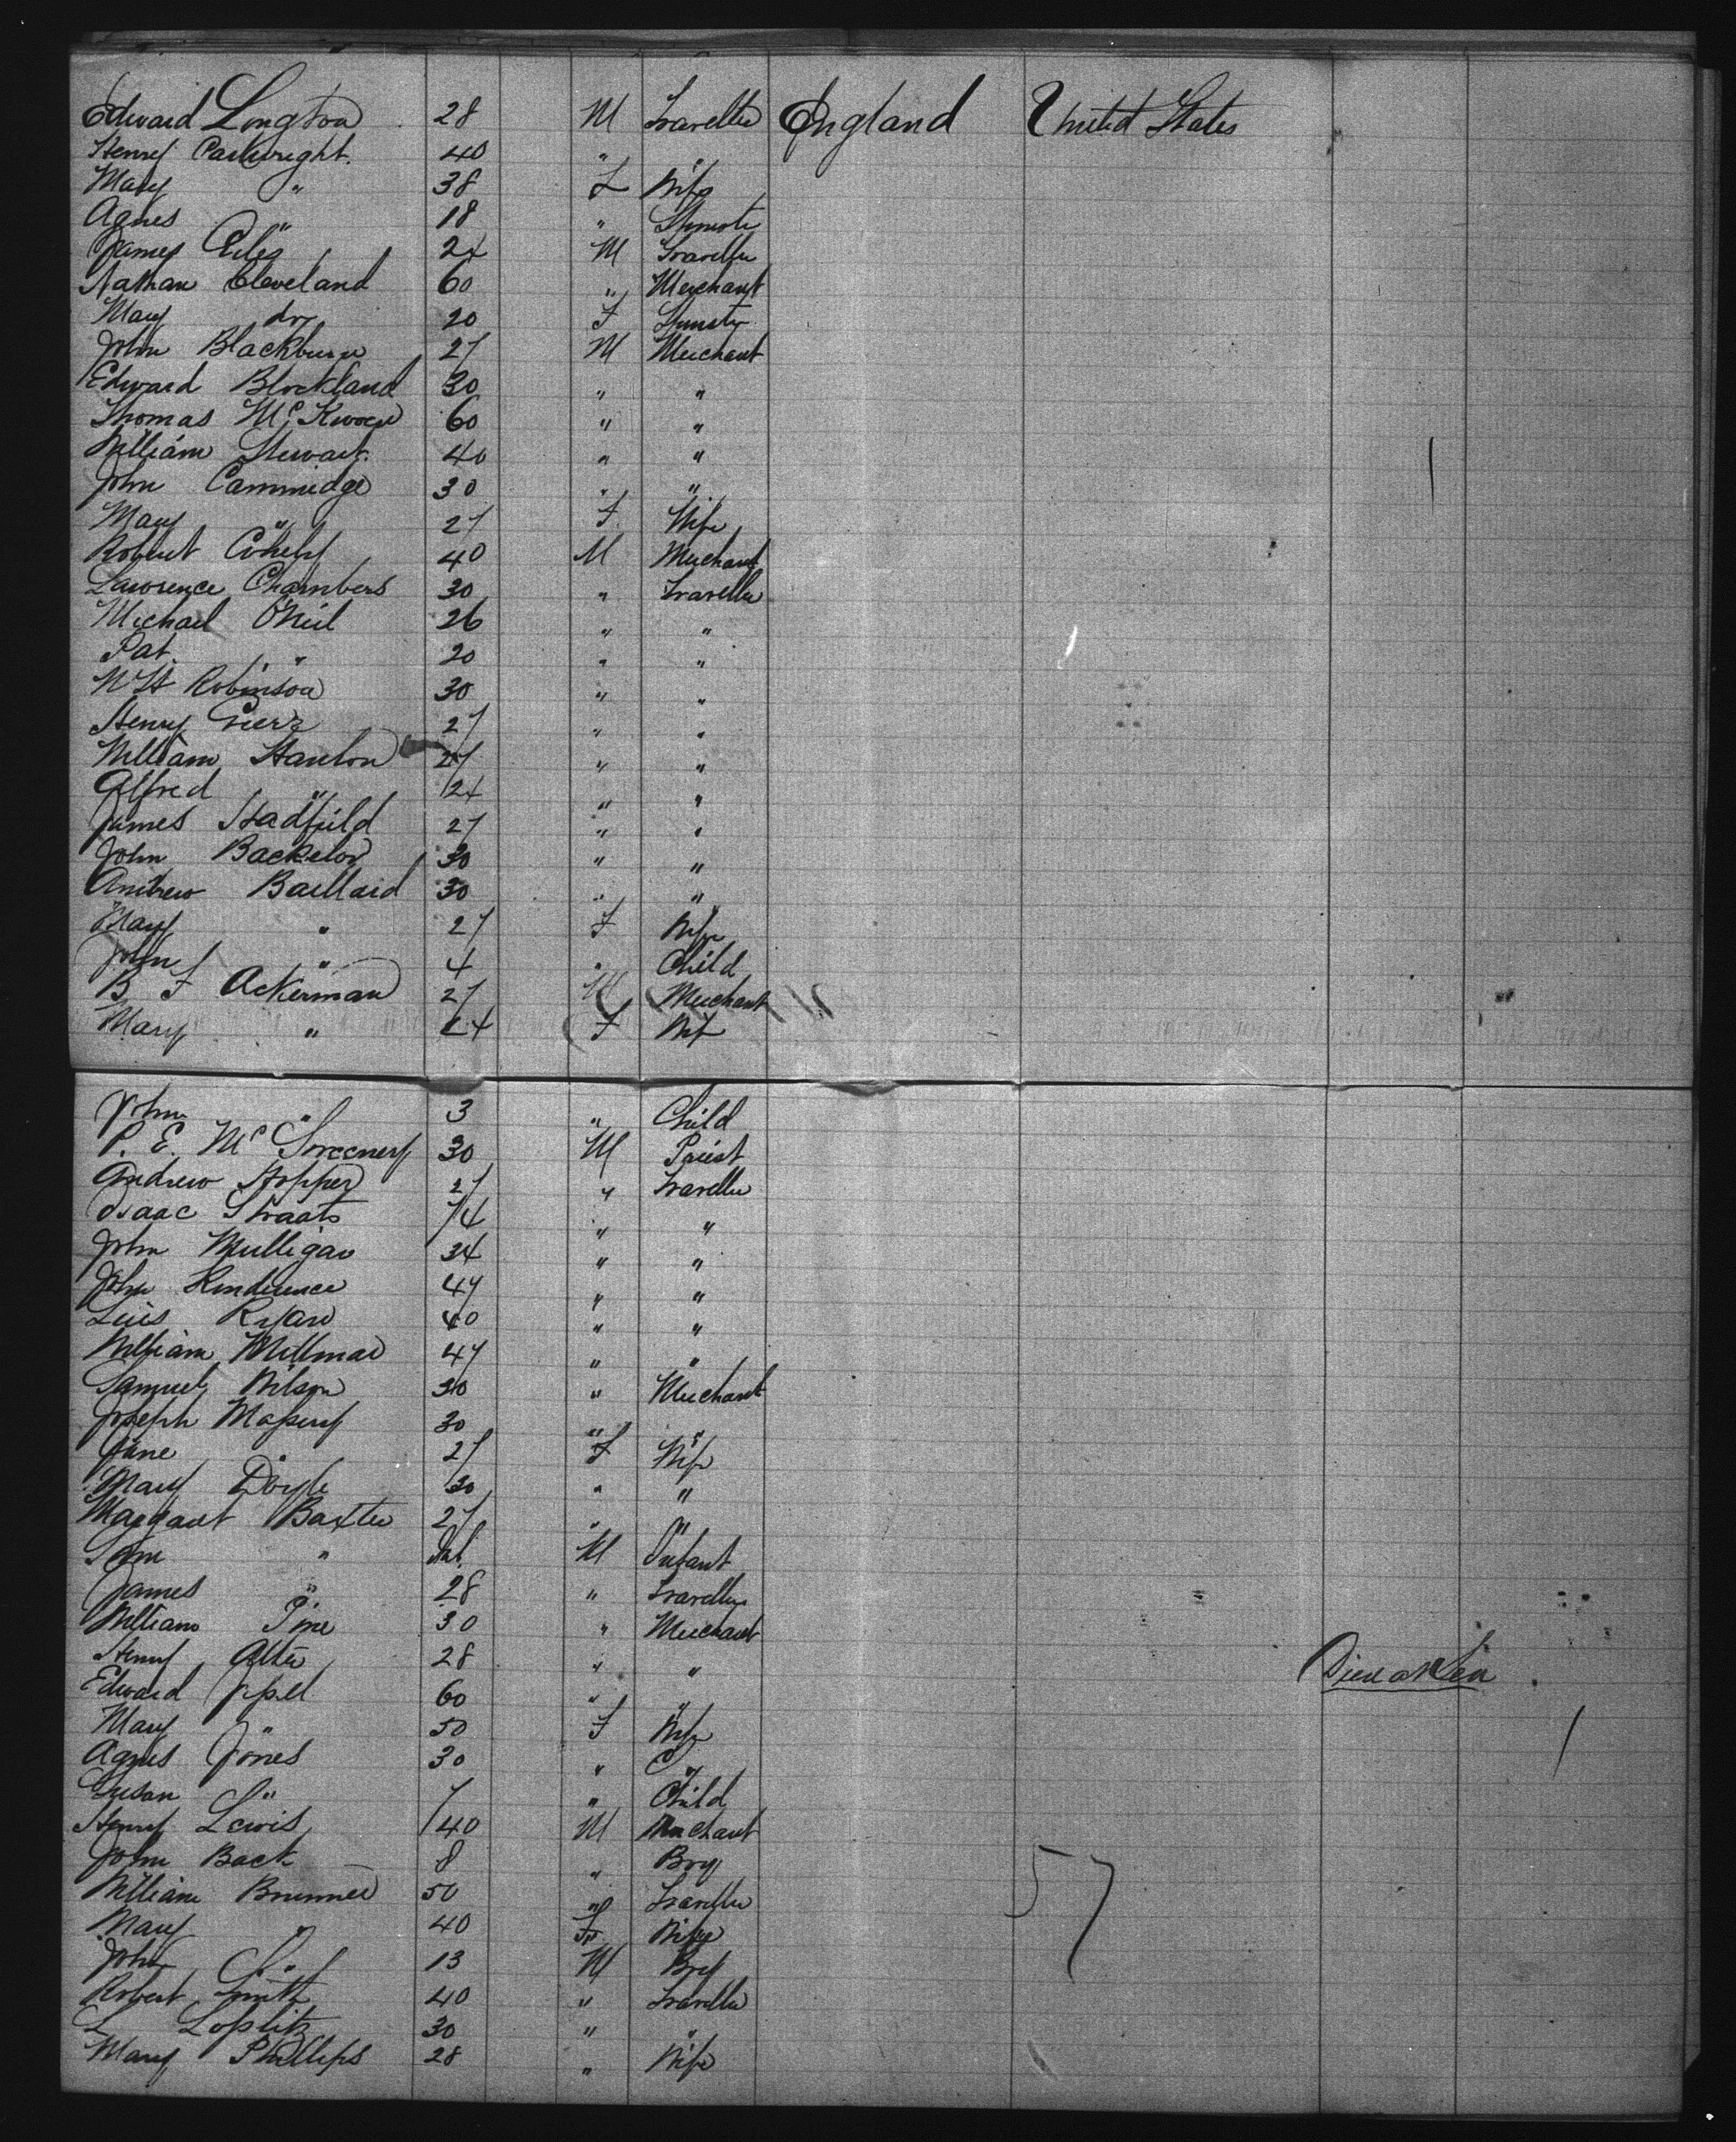 Edward Longton 28 M Traveller England United States
Henry Cartwright. 40 " "
Mary " 38 F Wife
Agnes " 18 " Spinster
James Giles 24 M Traveller
Nathan Cleveland 60 " Merchant
Mary do 20 F Spinster
John Blackburn 27 M Merchant
Edward Blockland 30 " "
Thomas 60 " "
William Stewart. 40 " "
John Cammidge 30 " "
Mary " 27 F Wife
Robert 40 M Merchant
Lawrence Chambers 30 " Traveller
Michael O'Neil 26 " "
Pat " 20 " "
W H Robinson 30 " "
Henry 27 " "
William Hanlon 27 " "
Alfred " 24 " "
James Hadfield 27 " "
John Backelor 30 " "
Andrew Baillard 30 " "
Mary " 27 F Wife
John " 4 " Child
B F Ackerman 27 M Merchant
Mary " 24 F Wife
John " 3 " Child
P. E. Mc Sweeney 30 M Priest
Andrew Hopper 27 " Traveller
Isaac Straats 74 " "
John Mulligan 34 " "
John 47 " "
Luis Ryan 40 " "
William Millman 47 " "
Samuel Wilson 30 " Merchant
Joseph Massey 30 " "
Jane " 27 F Wife
Mary Doyle 30 " "
Margaret Baxter 27 " "
Sam " Inf. M Infant
James " 28 " Traveller
William Pine 30 " Merchant
Henry 28 " " Died at Sea
Edward 60 " "
Mary " 50 F Wife
Agnes Jones 30 " "
Susan " 7 " Child
Henry Lewis 40 M Merchant
John Back 8 " Boy
William Brunner 50 " Traveller
Mary " 40 F Wife
John " 13 M Boy
Robert Smith 40 " Traveller
L 30 " "
Mary Phillips 28 " Wife
57